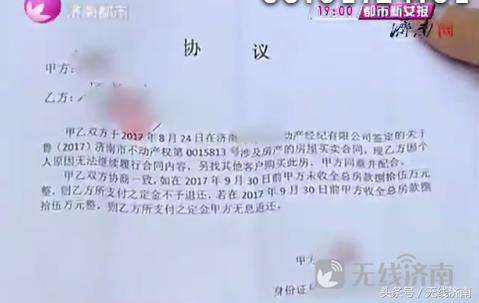 济南都市
19:00 都市新女报
济南网
协 议
甲方：
乙方：
甲乙双方于2017年8月24日在济南 动产经纪有限公司签定的关于
鲁（2017）济南市不动产权第0015813号涉及房产的房屋买卖合同，现乙方因个
人原因无法继续履行合同内容，另找其他客户购买此房，甲方同意并配合。
甲乙双方协商一致，如在2017年9月30日前甲方未收全总房款捌拾伍万元
整，则乙方所支付之定金不予退还，若在2017年9月30日前甲方收全总房款捌
拾伍万元整，则乙方所支付之定金甲方无息退还。
甲方
身份证
无线济南
头条号／无线济南